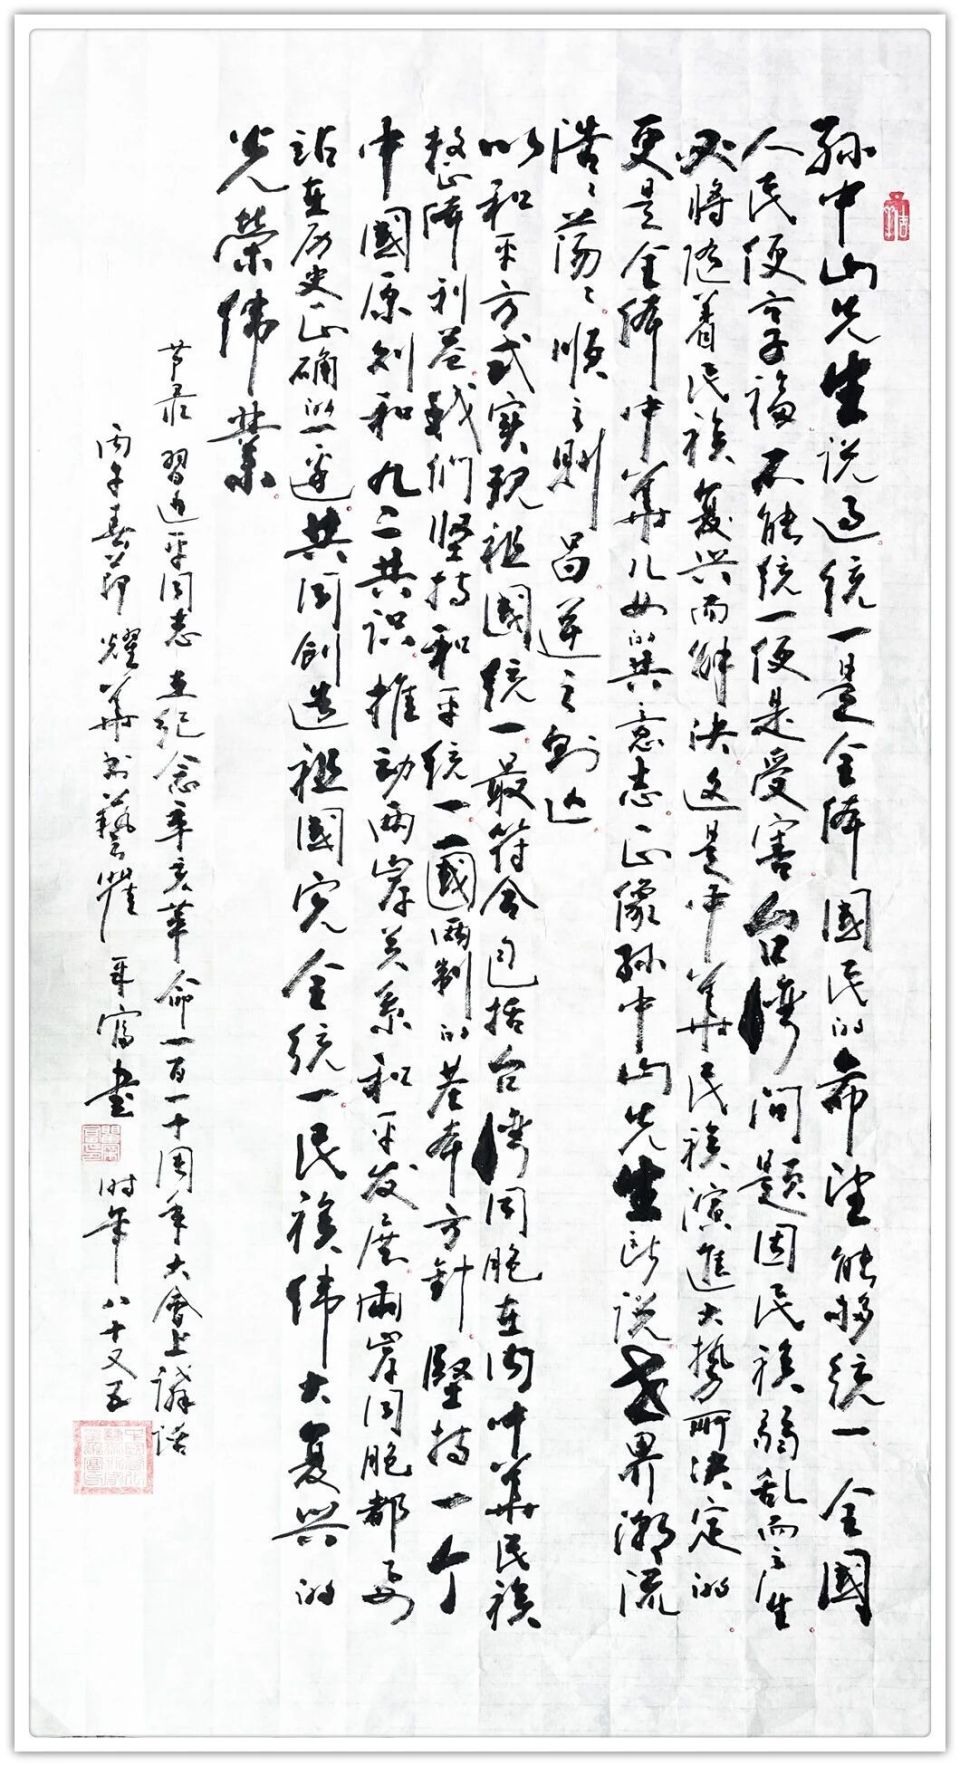 孙中山先生说过统一是全体國民的希望能够统一全國
人民便享福不能统一便是受害台湾问题因民族弱乱而产生
必将随着民族复兴而解决这是中华民族演進大势所决定的
更是全体中华儿女的共同意志正像孙中山先生所说世界潮流
浩浩荡荡顺之则昌逆之则亡
以和平方式实现祖國统一最符合包括台湾同胞在内中华民族
整体利益我们坚持和平统一一國两制的基本方針坚持一个
中國原则和九二共识推动两岸关系和平发展两岸同胞都要
站在历史正确的一边共同创造祖國完全统一民族伟大复兴的
光荣伟業
节录習近平同志在纪念辛亥革命一百一十周年大會上講话
丙午春节耀华书藝 年富書时年八十又五